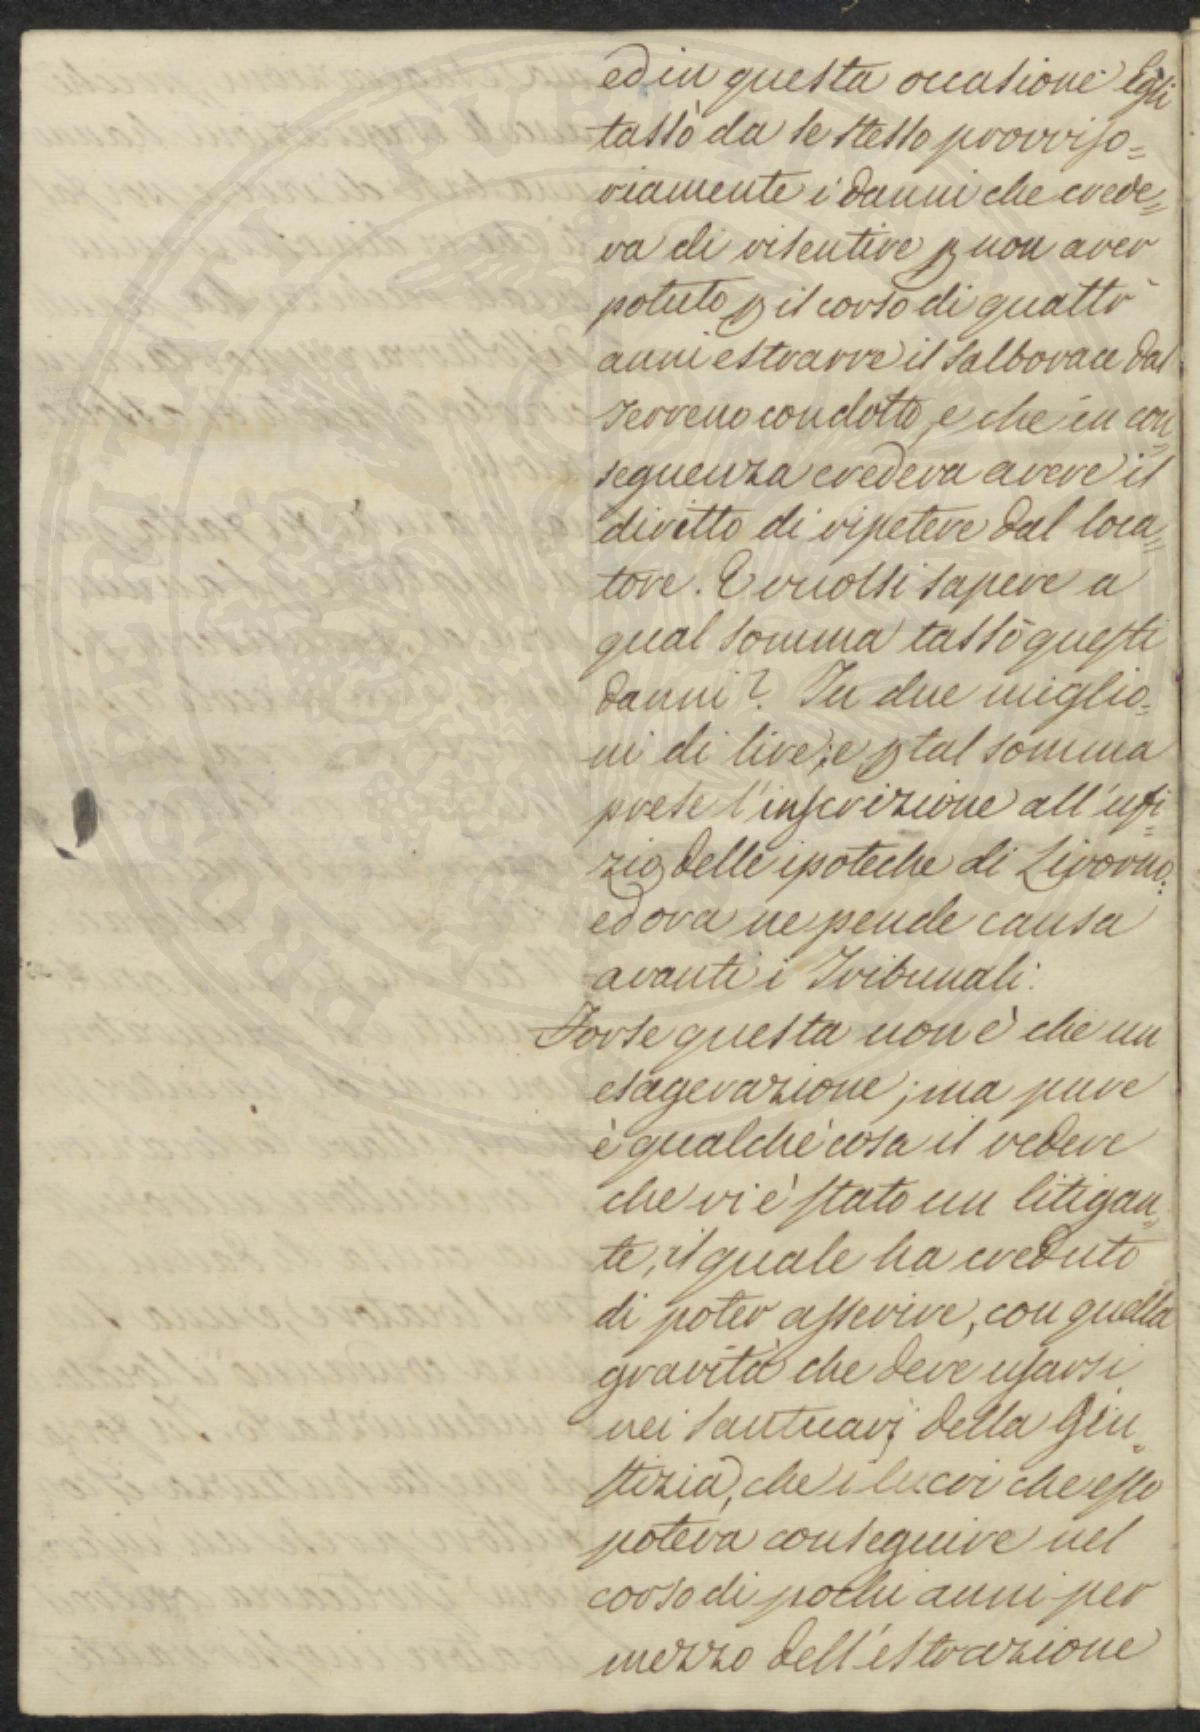 ed in questa occasione Egli
tassò da se stesso provviso=
riamente i danni che crede=
va di risentire p non aver
potuto p il corso di quattr'
anni estrarre il salborace dal
terreno condotto, e che in con=
seguenza credeva avere il
diritto di ripetere dal loca=
tore. E vuolsi sapere a
qual somma tassò questi
danni? In due miglio=
ni di lire; e p tal somma
prese l'inscrizione all'ufi=
zio delle ipoteche di Livorno:
ed ora ne pende causa
avanti i Tribunali:
Forse questa non è che un
esagerazione; ma pure
è qualche cosa il vedere
che vi è stato un litigan=
te, il quale ha creduto
di poter asserire, con quella
gravità che deve usarsi
nei santuarj della Giu=
stizia, che i lucri che esso
poteva conseguire nel
corso di pochi anni per
mezzo dell'estrazione
PROSPERITATI PUBLICAE